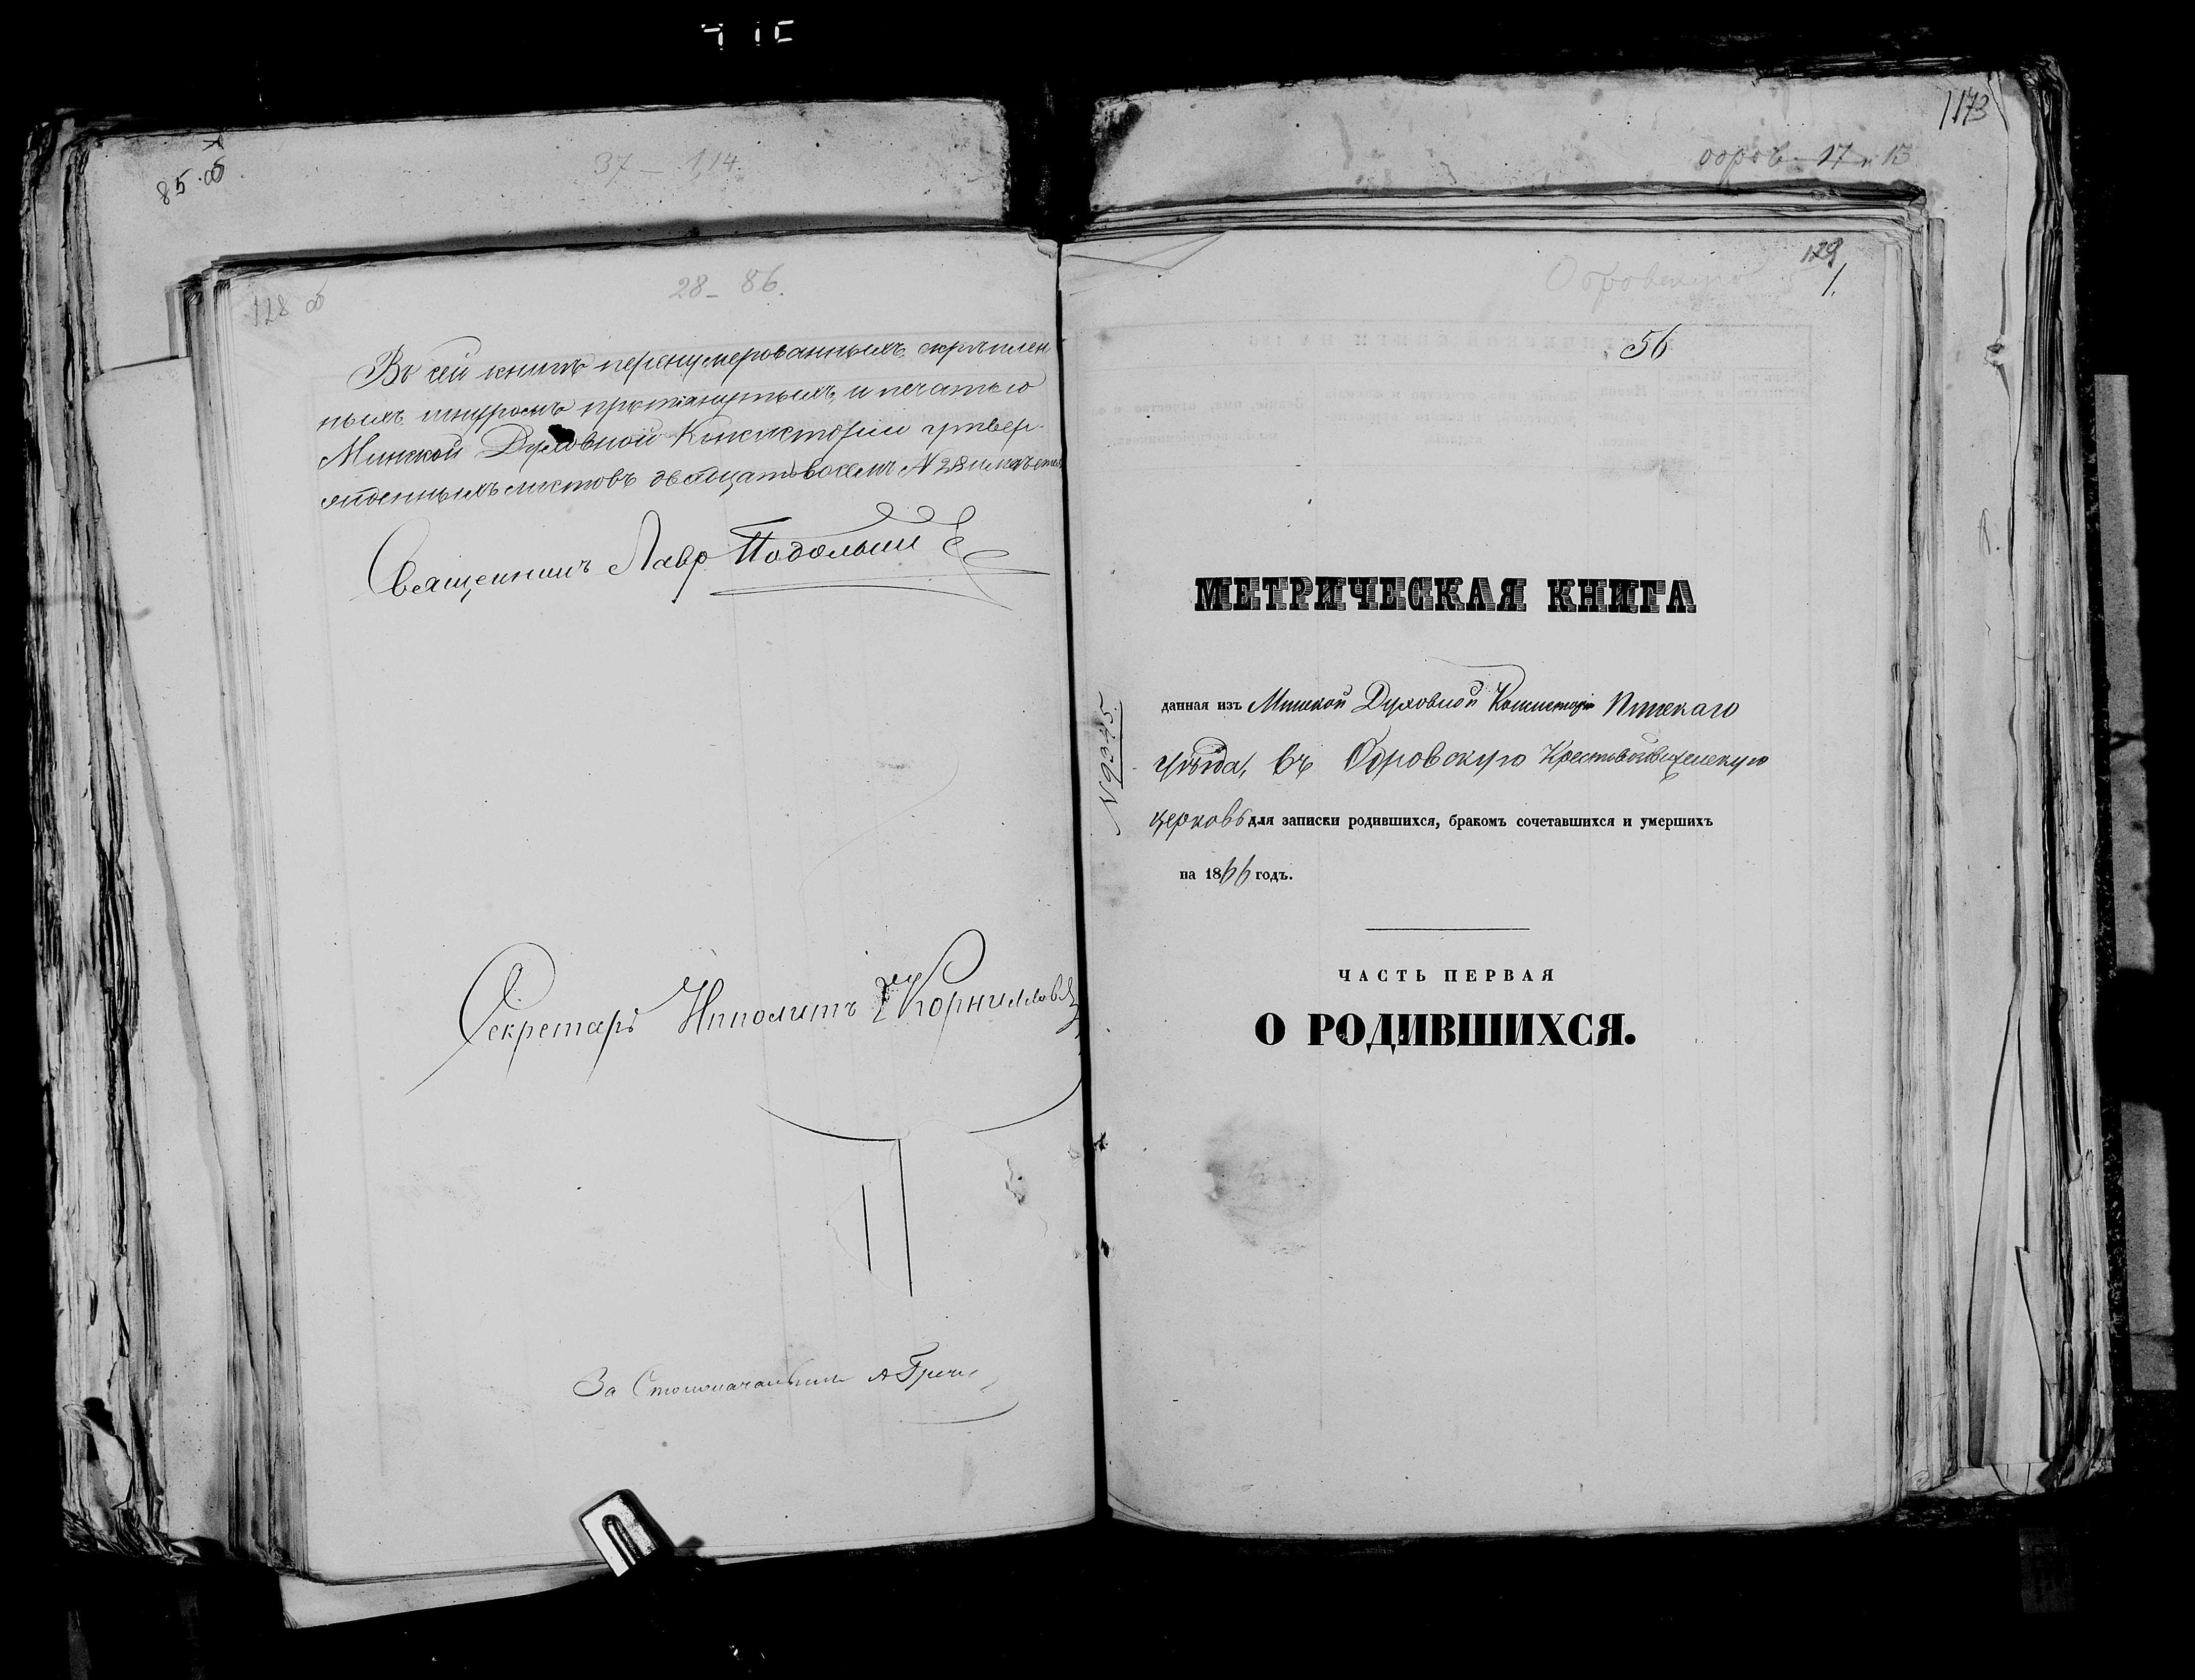 85 об
37 – 114.
128 об
28 – 86.
Въ сей книгѣ перенумерованныхъ, скрѣплен
ныхъ шнуромъ протянутыхъ, и печатью
Минской Духовной Консисторіи утвер-
жденныхъ листовъ двадцать восемь № 28 имѣется
Священникъ Лавр Подольский
Секретарь Ипполитъ Корниллов
За Столоначальника А Гречи
1173
129
1.
56
МЕТРИЧЕСКАЯ КНИГА
№9345.
данная изъ Минской Духовной Консисторіи Пинскаго
уѣзда, въ Обровскую Крестовоздвиженскую
церковь для записки родившихся, бракомъ сочетавшихся и умершихъ
на 1866 годъ.
ЧАСТЬ ПЕРВАЯ
О РОДИВШИХСЯ.